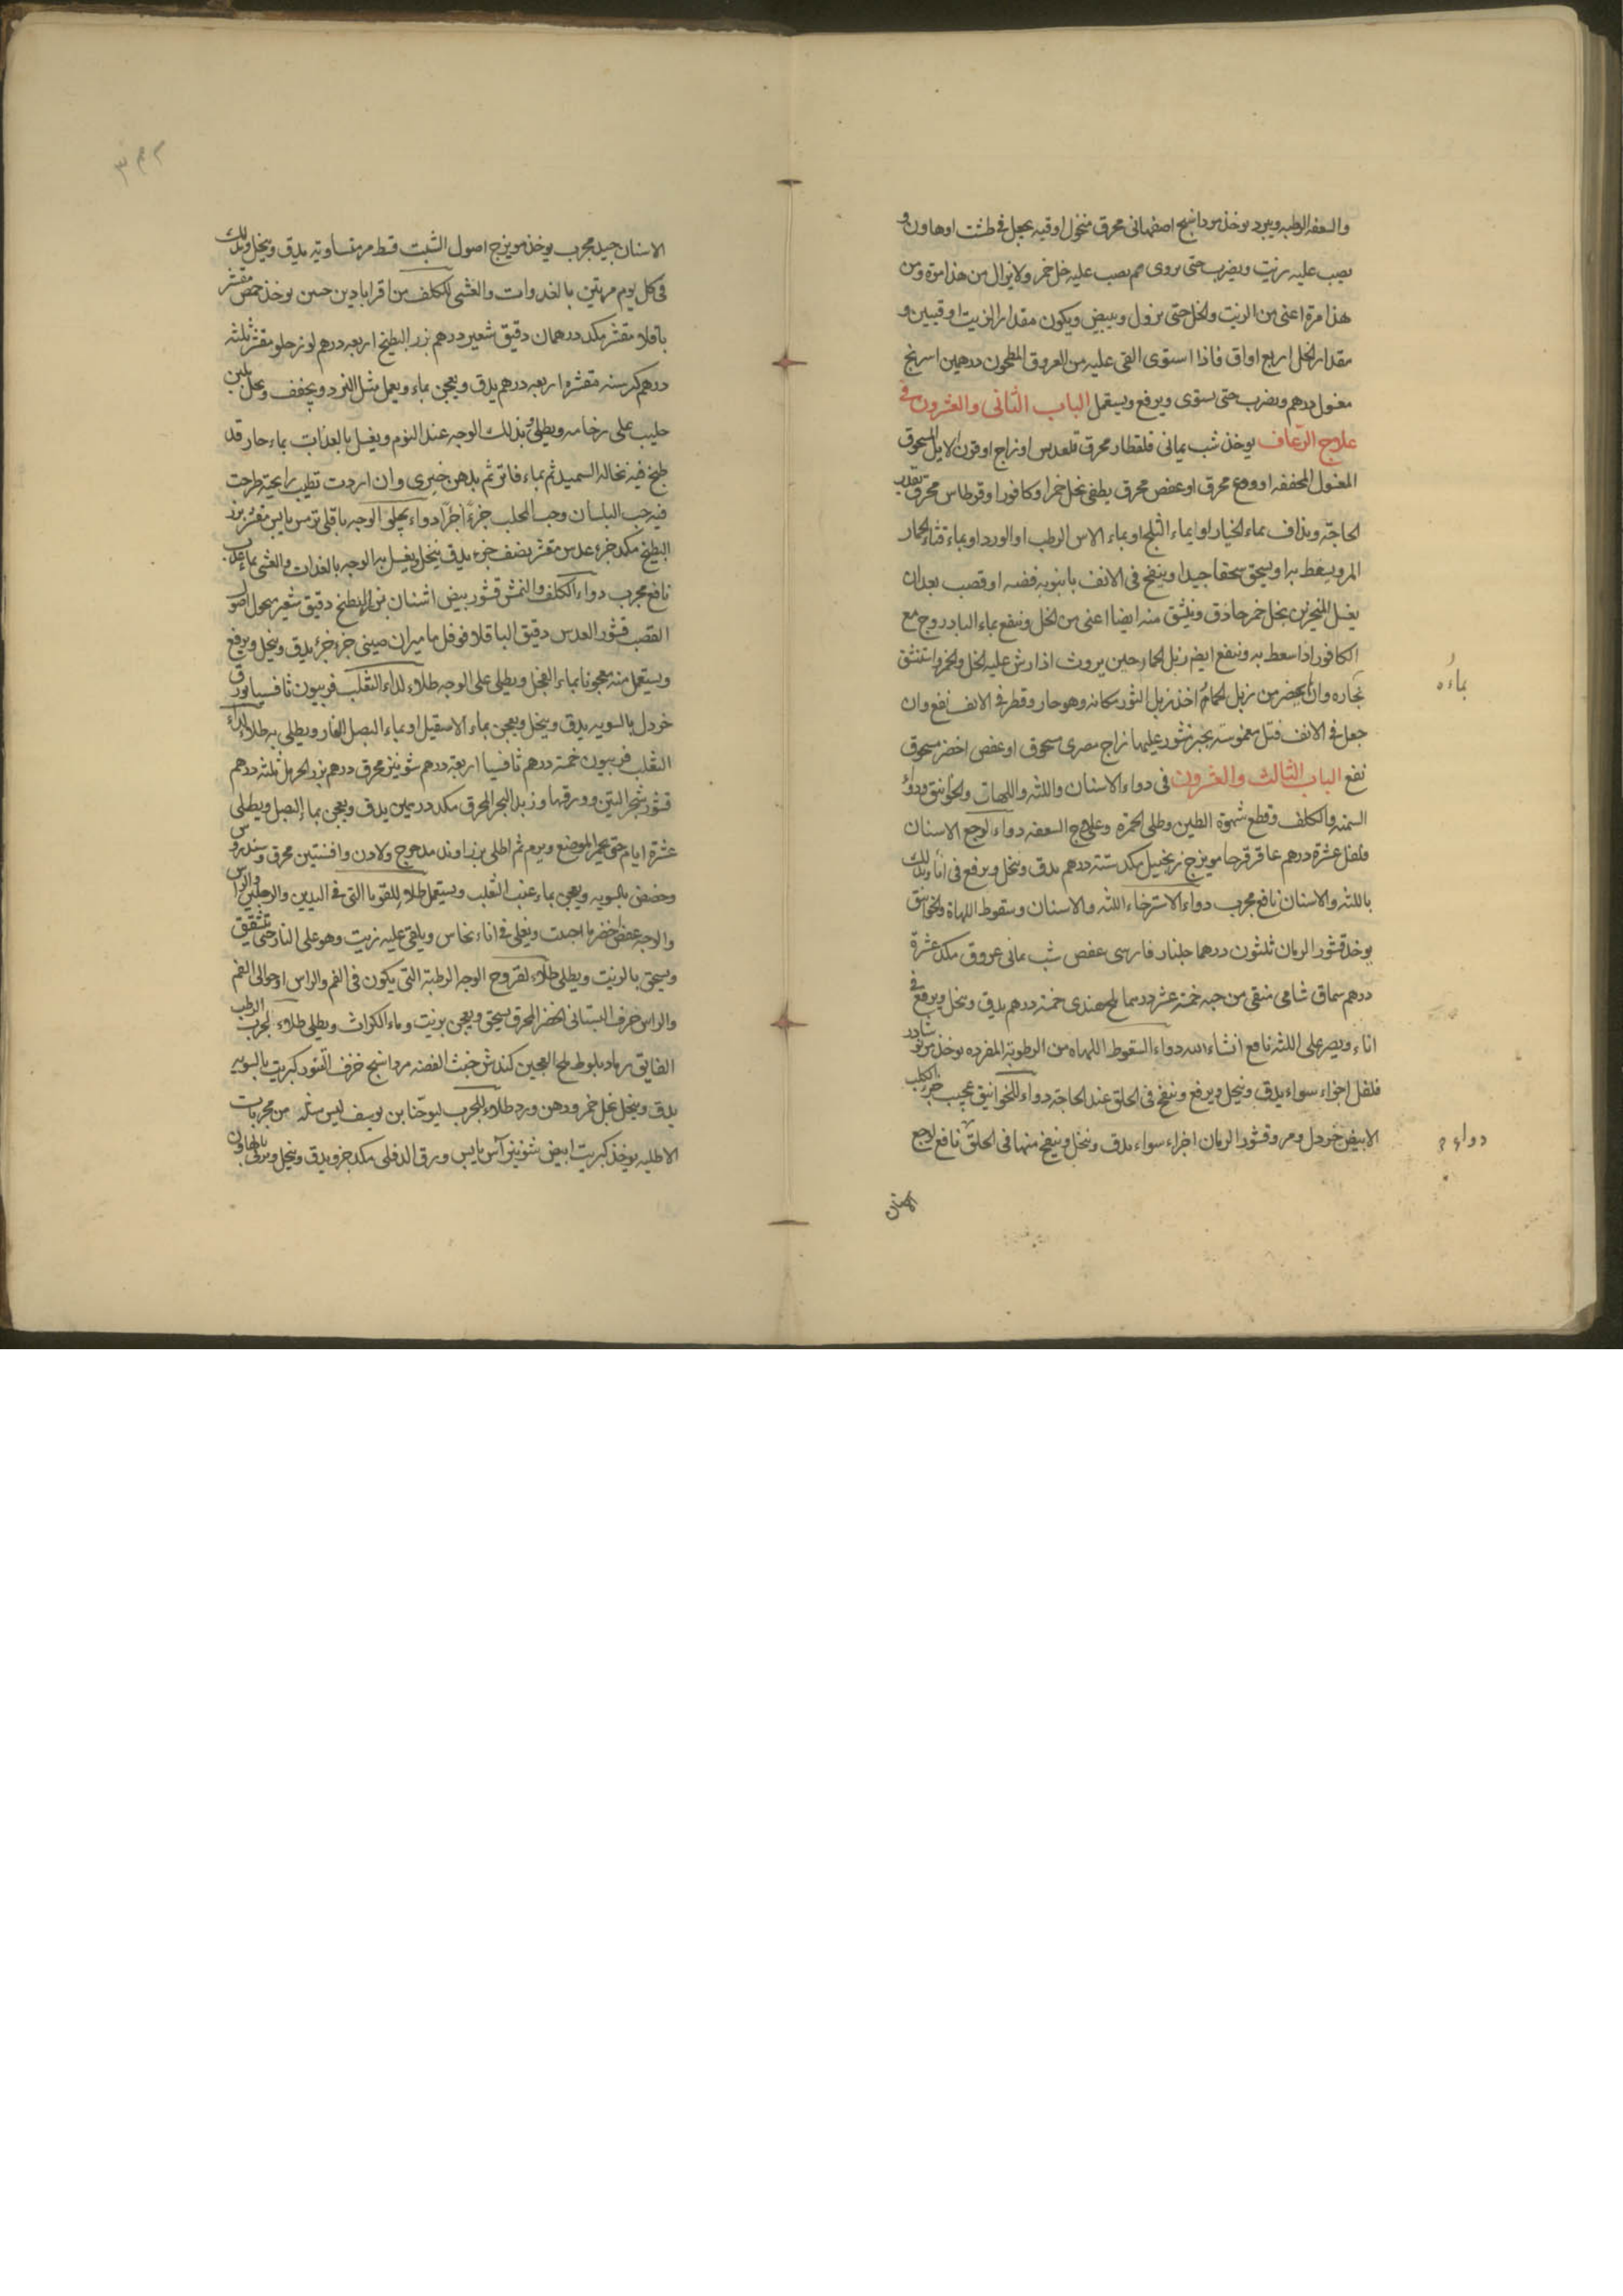 والسعفه الرطبه ويبرد يوخذ مرداسنج اصفهانى محرق منخول اوقيه يجعل فى طشت او هاون و
يصب عليه زيت ويضرب حتى يروى ثم يصب عليه خل خمر ولا يزال من هذا مرة ومن
هذا مرة اعنى من الزيت والخل حتى يزول ويبيض ويكون مقدار الزيت اوقيتين و
مقدار الخل اربع اواق فاذا استوى القى عليه من العروق المطحون درهمين اسرنج
مغسول درهم ويضرب حتى يستوى ويرفع ويستعمل الباب الثانى والعشرون فى
علاج الرعاف يوخذ شب يمانى قلقطار محرق قلقديس او زاج او قرن الايل المسحوق
المغسول المجففه او ودع محرق او عفص محرق يطفى بخل خمر او كافور او قرطاس محرق بقدر
الحاجة ويذاف بماء الخيار او بماء الثلج او بماء الاس الرطب او الورد او بماء قثاء الحمار
المر ويسعط به او يسحق سحقا جيدا وينفخ فى الانف بانبوبه فضه او قصب بعد ان
يغسل المنخرين بخل خمر حاذق وينشق منه ايضا اعنى من الخل وينفع بماء البادروج مع
الكافور اذا سعط به وينفع ايضا زبل الحمار حين يروث اذا رش عليه الخل والخمر واستنشق
بخاره وان لم يحضر من زبل الحمار اخذ زبل الثور مكانه وهو حار وقطر فى الانف نفع وان
بماءه
جعل فى الانف فتل مغموسة بحبر منثور عليها زاج مصرى مسحوق او عفص اخضر مسحوق
نفع الباب الثالث والعشرون فى دواء الاسنان واللثه واللهات والخوانيق ودواء
السمنه والكلف وقطع شهوة الطين وطلى الحمرة وعلاج السعفه دواء لوجع الاسنان
فلفل عشرة درهم عاقرقرحا مويزج زنجبيل مكد ستة درهم يدق وينخل ويرفع فى اناء ويدلك
باللثه والاسنان نافع مجرب دواء الاسترخاء اللثه والاسنان وسقوط اللهاة والخوانيق
يوخذ قشور الرمان ثلثون درهما جلنار فارسى عفص شب يمانى عروق مكد عشرة
درهم سماق شامى منقى من حبه خمسة عشر درهما ملح هندى خمسة درهم يدق وينخل ويرفع فى
اناء ويصر على اللثه نافع انشاء الله دواء السقوط اللهاه من الرطوبة المفرده يوخذ من نوشادر
فلفل اجزاء سواء يدق وينخل ويرفع وينفخ فى الحلق عند الحاجة دواء للخوانيق عجيب خرء الكلب
الابيض خردل ومر وقشور الرمان اجزاء سواء يدق وينخل وينفخ منها فى الحلق نافع لوجع
دواء
الاسنان
الاسنان جيد مجرب يوخذ مويزج اصول الشبت قسط مر متساوية يدق وينخل ويدلك
فى كل يوم مرتين بالغدوات والعشى للكلف من اقراباذين حسن يوخذ حمص مقشر
باقلا مقشر مكد درهمان دقيق شعير درهم بزر البطيخ اربعه درهم لوز حلو مقشر ثلثه
درهم كرسنه مقشره اربعه درهم يدق ويعجن بماء ويعمل مثل النرد ويجفف ويحل بلبن
حليب على رخامه ويطلى بذلك الوجه عند النوم ويغسل بالغداة بماء حار قد
طبخ فيه نخاله السميد ثم بماء فاتر ثم بدهن خيرى وان اردت تطيب رايحته طرحت
فيه حب البلسان وحب المحلب جزء اجزا دواء يجلى الوجه باقلى ترمس يابس مقشر بزر
البطيخ مكد جزء عدس مقشر نصف جزء يدق ينخل ويغسل به الوجه بالغدات والعشى بماء عذب
نافع مجرب دواء الكلف والنمش قشور بيض اشنان بزر البطيخ دقيق شعير منخول اصول
القصب قشور العدس دقيق الباقلا فوفل ماميران صينى جزء جزء يدق وينخل ويرفع
ويستعمل منه معجونا بماء الفجل ويطلى على الوجه طلاء لداء الثعلب فربيون ثافسيا ورق
خردل بالسويه يدق وينخل ويعجن بماء الاسقيل او بماء البصل الفار ويطلى به طلاء لداء
الثعلب فربيون خمسة درهم ثافسيا اربعة درهم شونيز محرق درهم بزر الحرمل ثلثه درهم
قشور شجر التين وورقها وزبد البحر المحرق مكد درهمين يدق ويعجن بماء البصل ويطلى
عشرة ايام حتى يحمر الموضع ويرم ثم اطلى بزراوند مدحرج ولادن وافسنتين محرق وسندروس
وحضض بالسويه ويعجن بماء عنب الثعلب ويستعمل طلاء للقوبا التى فى اليدين والرجلين والراس
والوجه عفص اخضر ما احببت ويغلى فى اناء نحاس ويلقى عليه زيت وهو على النار حتى يتشقق
ويسحق بالزيت ويطلى طلاء لقروح الوجه الرطبة التى يكون فى الفم والراس او حوالى الفم
والراس خزف البستانى الخضر المحرق يسحق ويعجن بزيت وماء الكراث ويطلى طلاء لجرب الرطب
الفايق رماد بلوط ملح العجين كندش خبث الفضه مرداسنج خزف التنور كبريت بالسويه
يدق وينخل بخل خمر ودهن ورد طلاء للجرب ليوحنا بن يوسف ليس مثله من مجربات
الاطليه يوخذ كبريت ابيض شونيز آس يابس ورق الدفلى مكد جزء يدق وينخل ويربى بالهاون